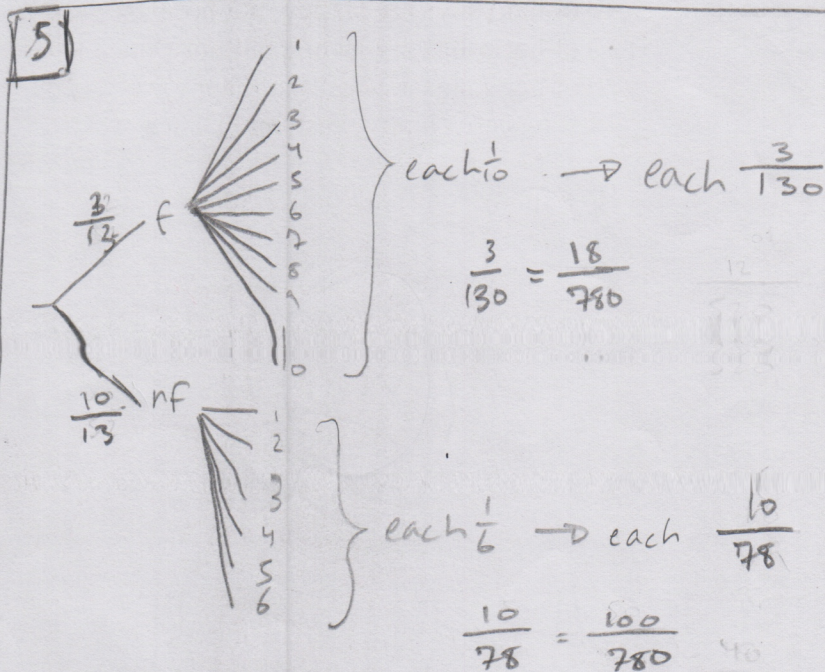 5
1
2
3
4
5
6
7
8
9
10
3/13 f
each 1/10 → each 3/130
3/130 = 18/780
10/13 nf
1
2
3
4
5
6
each 1/6 → each 10/78
10/78 = 100/780